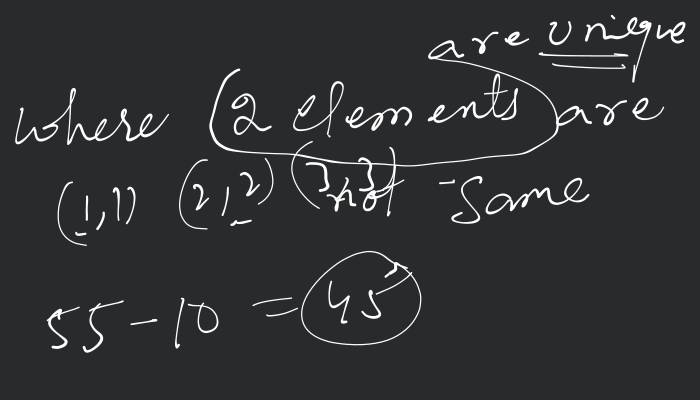 are unique
where (2 elements) are
(1,1) (2,2) (3,3) not same
55 - 10 = 45